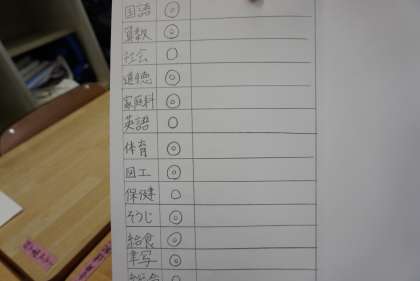 国語 ◎
算数 ◎
社会 ○
道徳 ◎
家庭科 ◎
英語 ○
体育 ◎
図工 ◎
保健 ○
そうじ ◎
給食 ◎
書写 ◎